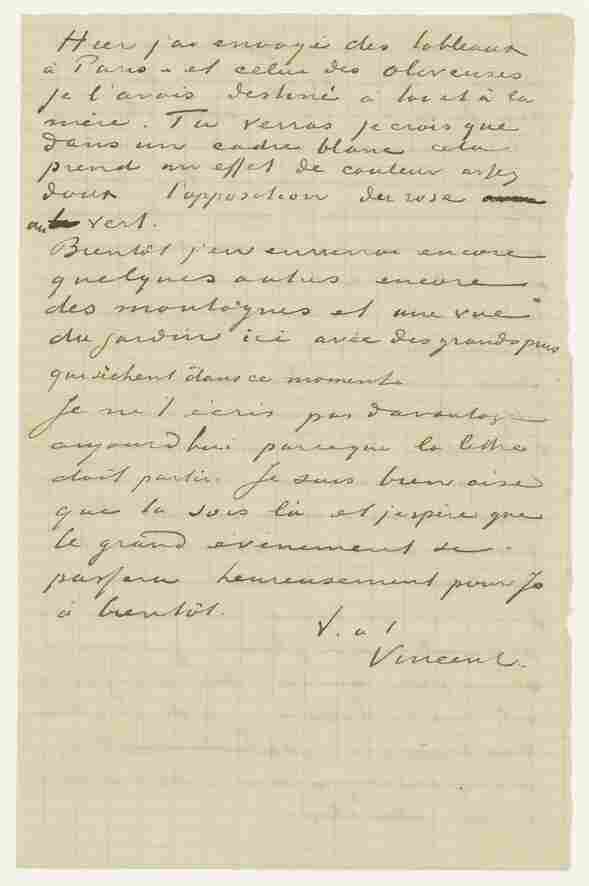 Hier j'ai envoyé des tableaux
à Paris – et celui des oliveuses
je l'avais destiné à toi et à la
mère. Tu verras je crois que
dans un cadre blanc cela
prend un effet de couleur assez
doux l'opposition du rose
au vert.
Bientôt j'en enverrai encore
quelques autres encore
des montagnes et une vue
du jardin ici avec des grands pins
qui sèchent dans ce moment.
Je ne t'écris pas davantage
aujourd'hui parceque la lettre
doit partir. Je suis bien aise
que tu sois là et j'espère que
le grand évènement se
passera heureusement pour Jo
à bientôt.
t. à t.
Vincent.